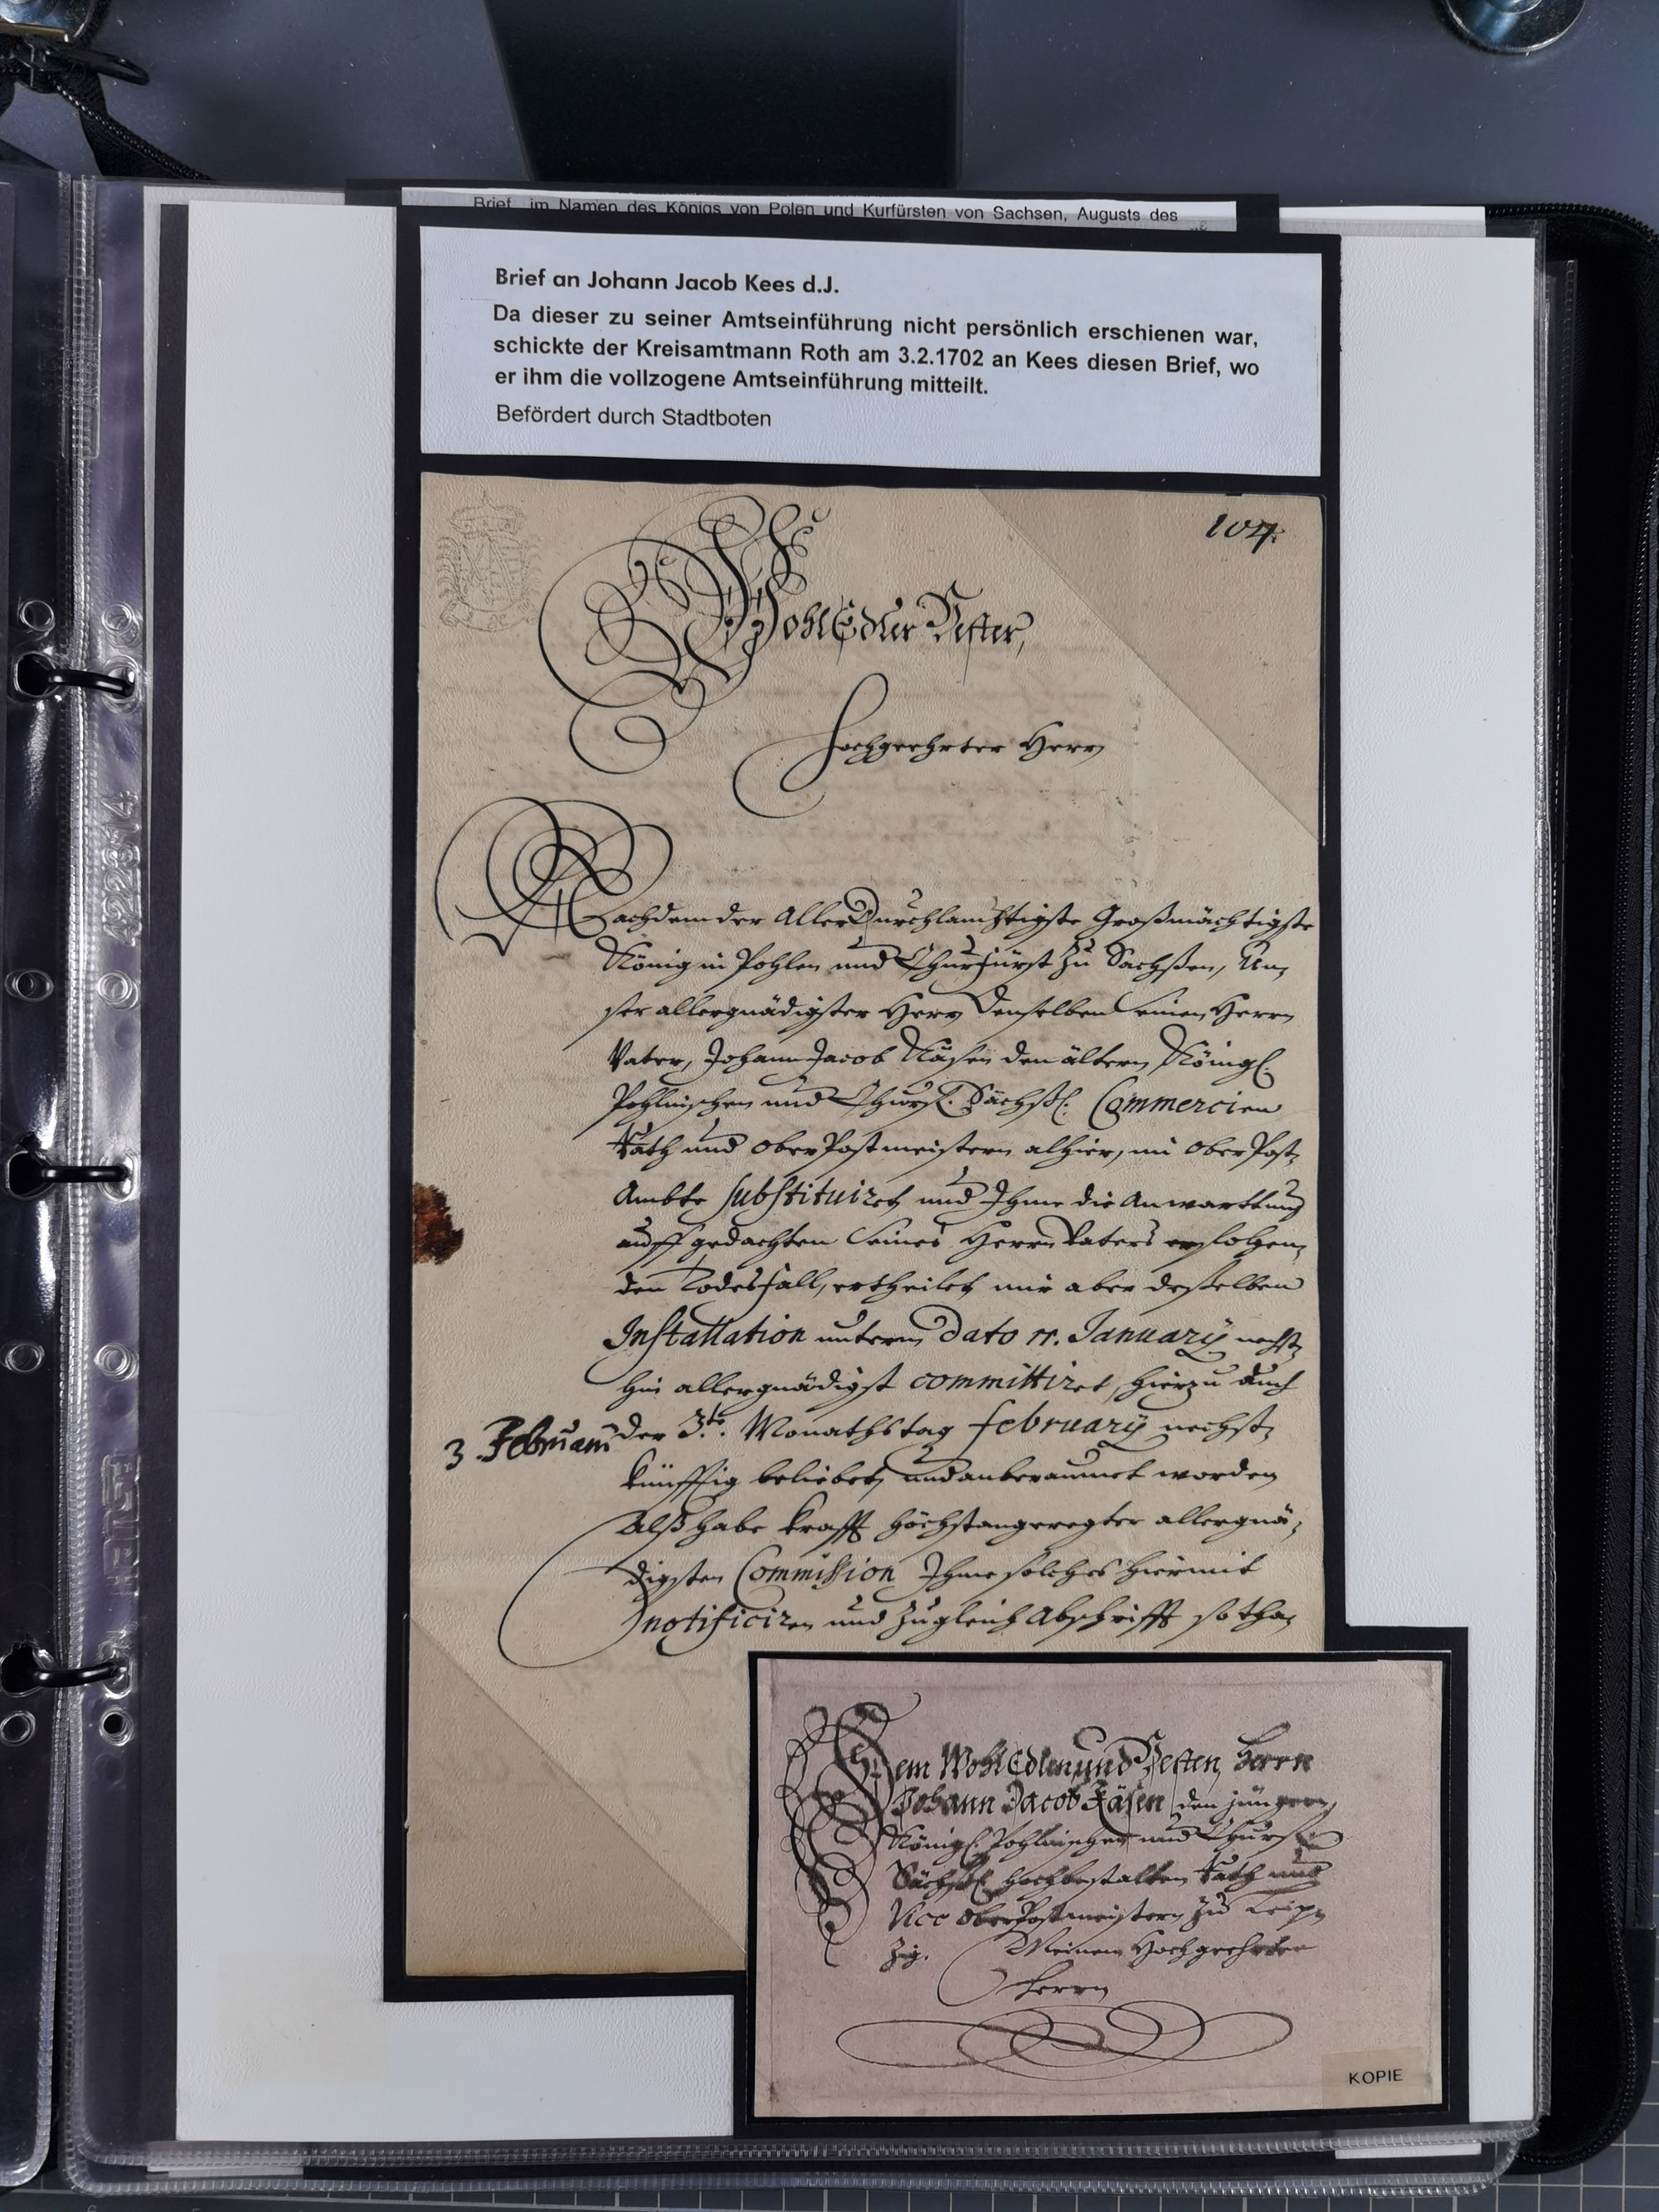 Brief im Namen des Königs von Polen und Kurfürsten von Sachsen, Augusts des
Brief an Johann Jacob Kees d.J.
Da dieser zu seiner Amtseinführung nicht persönlich erschienen war,
schickte der Kreisamtmann Roth am 3.2.1702 an Kees diesen Brief, wo
er ihm die vollzogene Amtseinführung mitteilt.
Befördert durch Stadtboten
104.
WohlEdler Vester,
Hochgeehrter Herr
Nachdem der AllerDurchlauchtigste Großmächtigste
König in Pohlen und Churfürst zu Sachßen, Un,
ser allergnädigster Herr Denselben seinen Herrn
Vater, Johann Jacob Käsen den ältern, Königl.
Pohlnischen und Churf. Sächßl. Commercien
Rath und OberPostmeistern alhier, im OberPost,
Ambte substituiret und Ihme die Anwarttung
auff gedachten seines Herrn Vaters erfolgen,
den Todesfall, ertheilet, mir aber deßelben
Installation unterm dato 11. January nechst,
hin allergnädigst committiret, hierzu auch
3. Februarij
der 3te. Monathstag February nechst,
künfftig beliebet, und anberaumet worden
Alß habe krafft höchstangeregter allergnä,
digsten Commission Ihme solches hiermit
notificiren und zugleich Abschrifft so tha,
Dem WohlEdlen und Vesten, Herrn
Johann Jacob Käsen den jüngern,
Königl. Pohlnischen und Churf.
Sächßl. hochbestalten Rath und
Vice OberPostmeistern zu Leip,
zig. Meinem Hochgeehrten
Herrn
KOPIE
422814